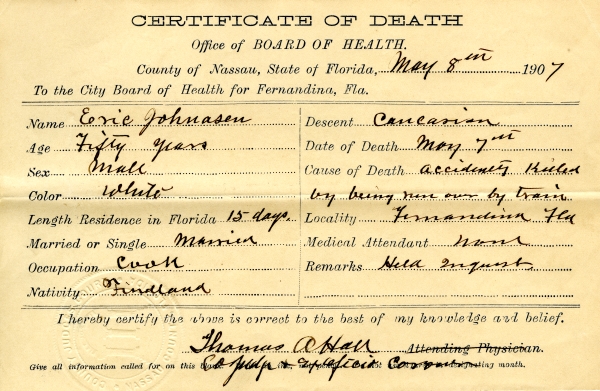 CERTIFICATE OF DEATH
Office of BOARD OF HEALTH.
County of Nassau, State of Florida, May 8th 1907
To the City Board of Health for Fernandina, Fla.
Name Eric Johnasen
Age Fifty years
Sex Male
Color White
Length Residence in Florida 15 days.
Married or Single Married
Occupation Cook
Nativity Findland
Descent Caucasian
Date of Death May 7th
Cause of Death Accidently Killed
by being run over by train
Locality Fernandina Fla
Medical Attendant None
Remarks Held Inquest
I hereby certify the above is correct to the best of my knowledge and belief.
Thomas A Hall Attending Physician.
Give all information called for on this
Co Judge & Exofficio Coroner